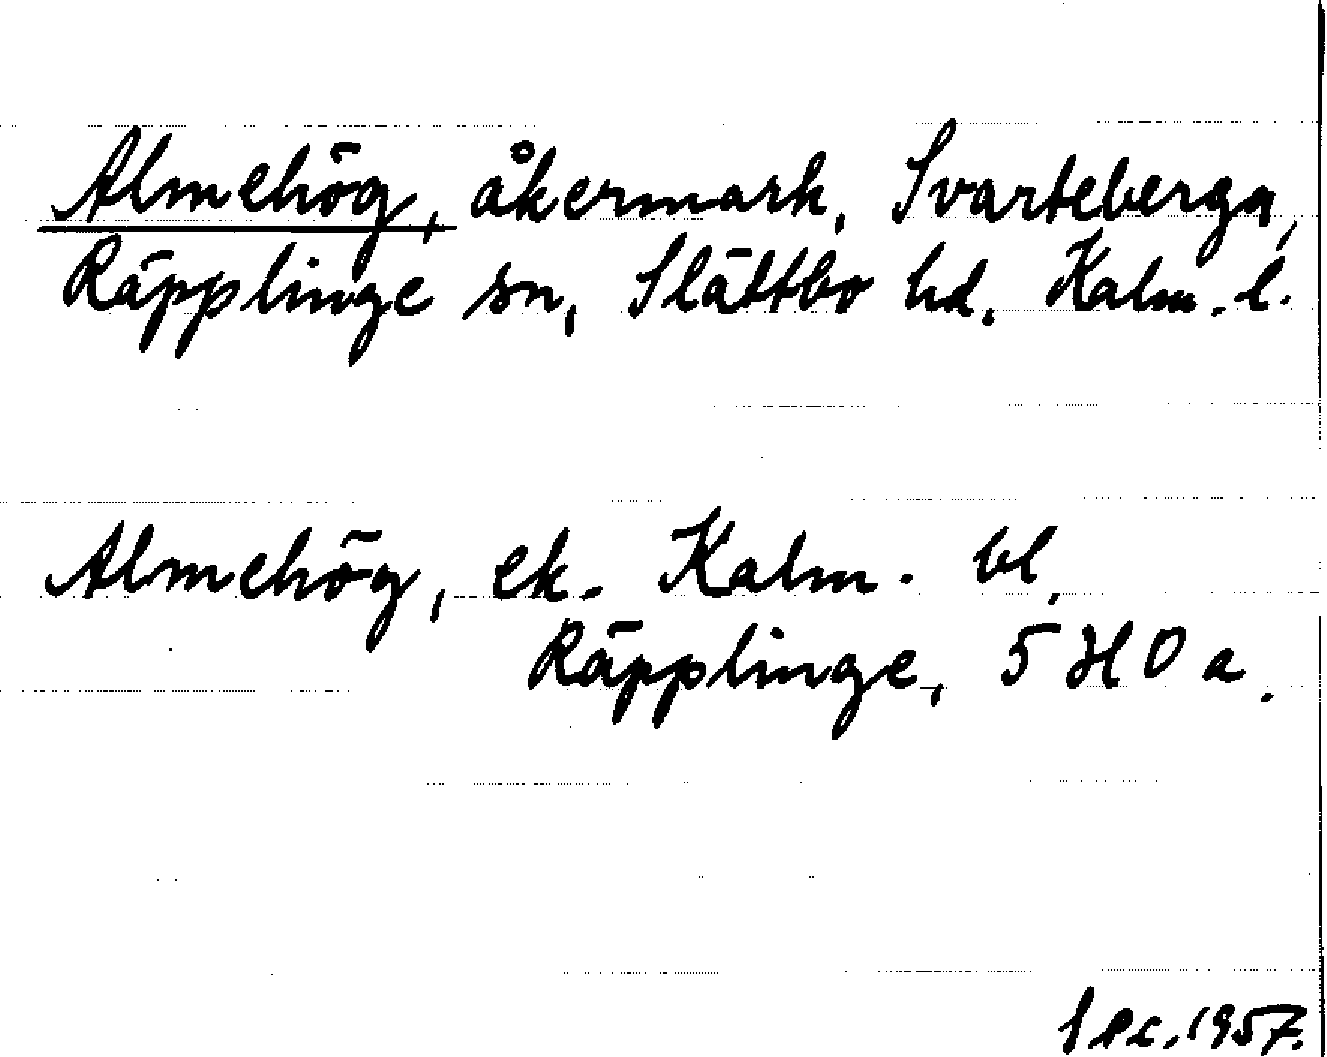 Almehög, åkermark, Svarteberga,
Räpplinge sn, Slättbo hd. Kalm. l.
Almehög, ek. Kalm. bl.
Räpplinge, 5 H 0 a.
1957.